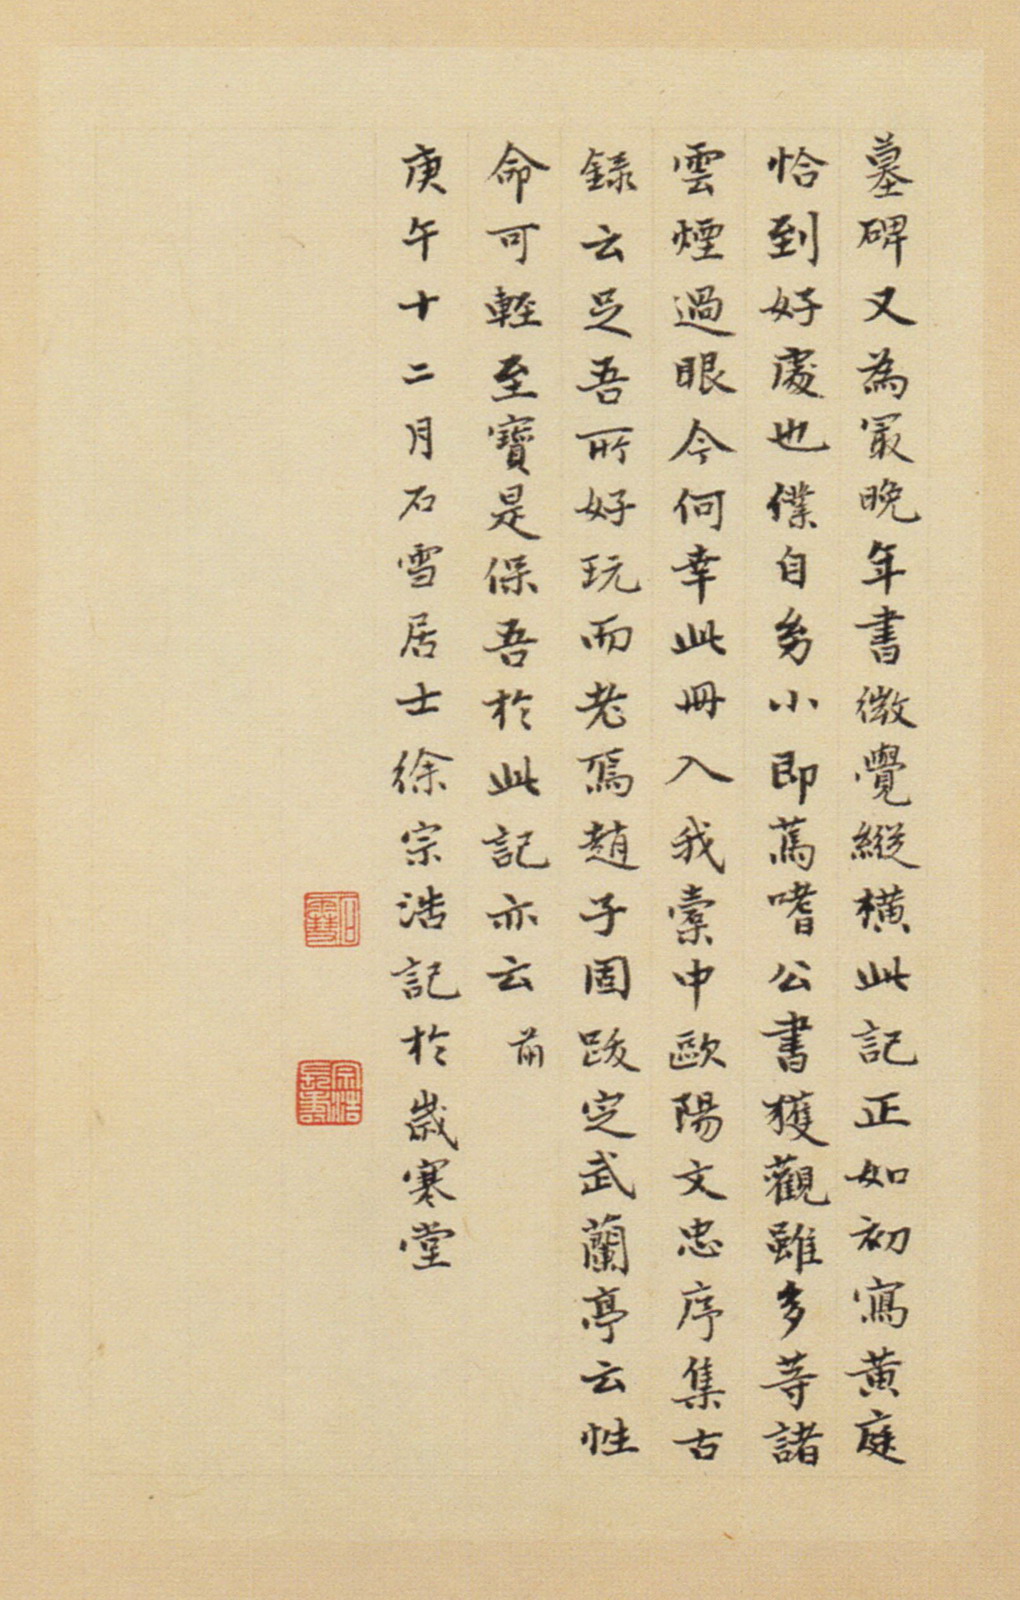 墓碑又為冣晚年書微覺縱橫此記正如初寫黃庭
恰到好處也僕自㓜小即萬嗜公書獲觀雖多等諸
雲煙過眼今何幸此冊入我橐中歐陽文忠序集古
録云足吾所好玩而老焉趙子固跋定武蘭亭云性
命可輕至寶是保吾於此記亦云
庚午十二月石雪居士徐宗浩記於歲寒堂
石雪
宗浩長壽